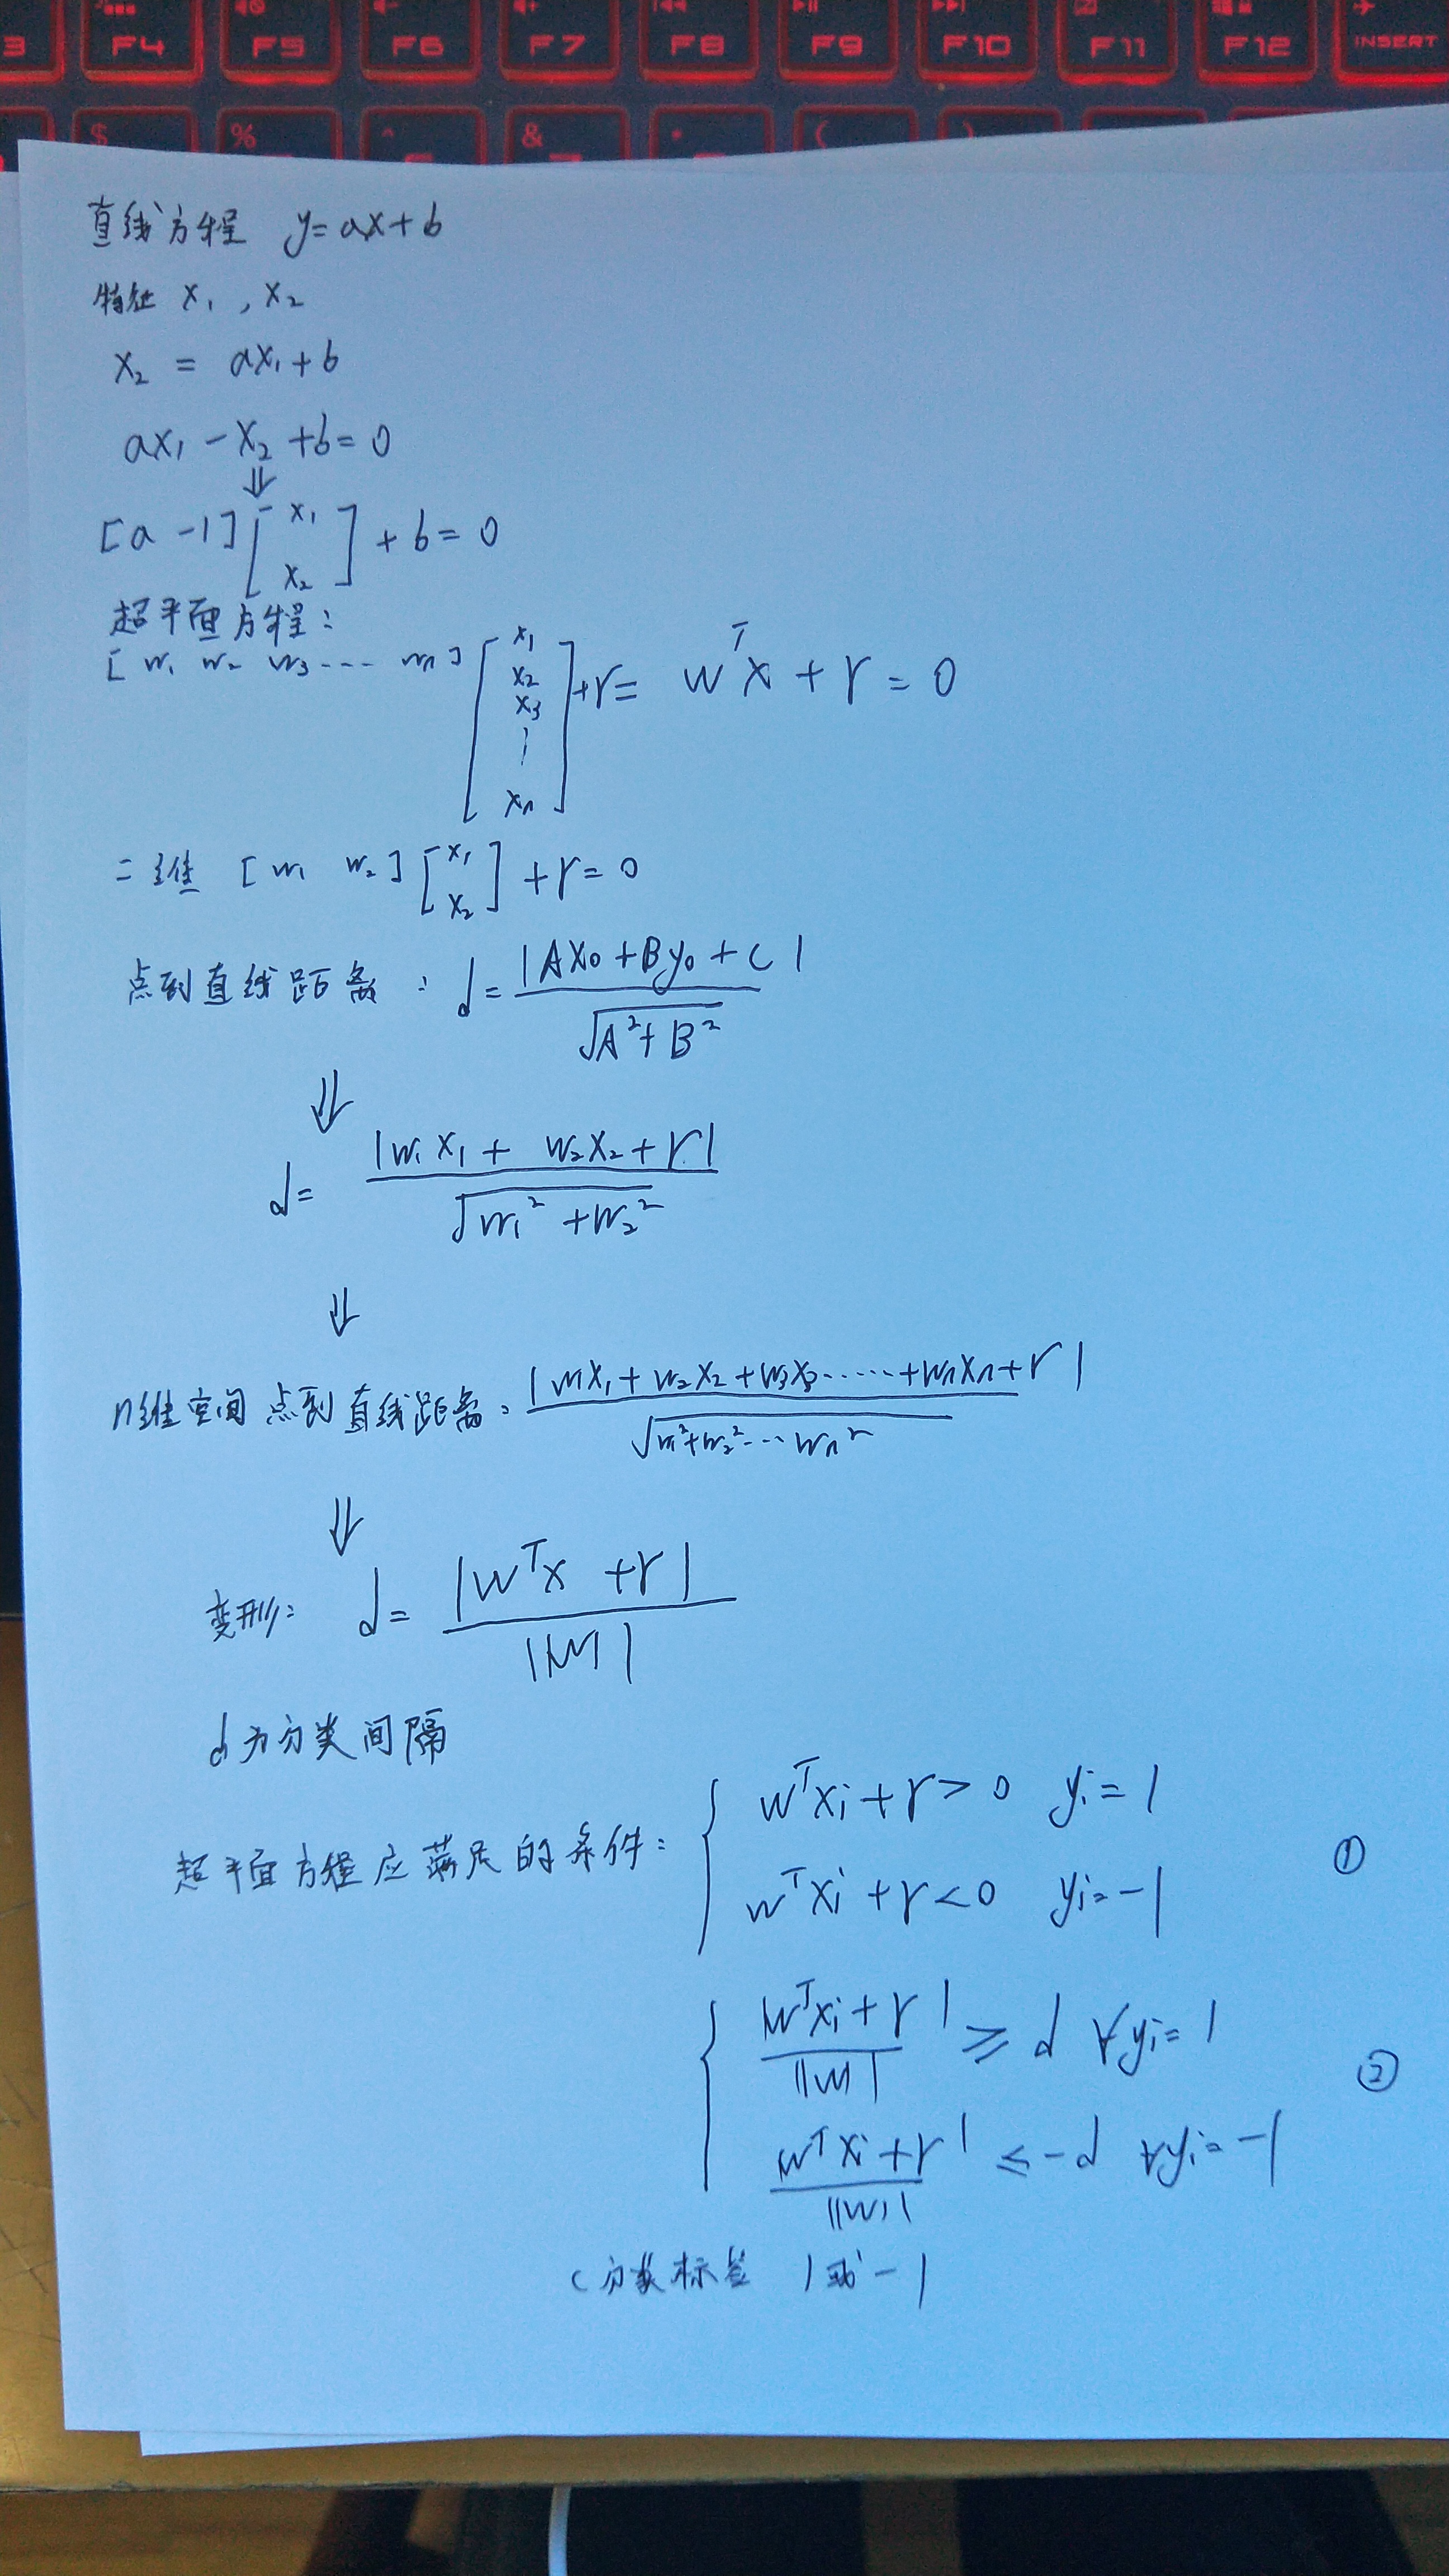 3 F4 F5 F6 F7 F8 F9 F10 F11 F12 INSERT
$ % ^ & * ( )
直线方程 y=ax+b
特征 x₁ , x₂
x₂ = ax₁+b
ax₁ -x₂ +b=0
⇓
[a -1] [x₁ x₂] + b = 0
超平面方程:
[ w₁ w₂ w₃ --- wn ] [x₁ x₂ x₃ ⋮ xn] +γ= wᵀx + γ = 0
二维 [ w₁ w₂ ] [x₁ x₂] +γ=0
点到直线距离 : d= |Ax₀+By₀+C| / √(A²+B²)
⇓
d= |w₁x₁+ w₂x₂+γ| / √(w₁²+w₂²)
⇓
n维空间点到直线距离: |w₁x₁+w₂x₂+w₃x₃……+wnxn+γ| / √(w₁²+w₂²---wn²)
⇓
变形: d= |wᵀx +γ| / ||w||
d为分类间隔
超平面方程应满足的条件: { wᵀxi+γ> 0 yi=1
wᵀxi+γ<0 yi=-1 ①
{ wᵀxi+γ / ||w|| ≥ d ∀yi=1
wᵀxi+γ / ||w|| ≤-d ∀yi=-1 ②
(分类标签 1或-1